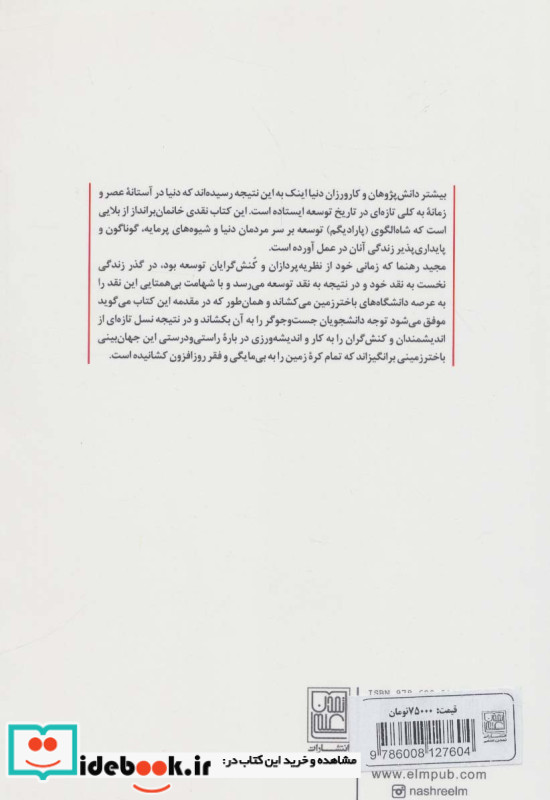 بیشتر دانش‌پژوهان و کارورزان دنیا اینک به این نتیجه رسیده‌اند که دنیا در آستانهٔ عصر و
زمانهٔ به کلی تازه‌ای در تاریخ توسعه ایستاده است. این کتاب نقدی خانمان‌برانداز از بلایی
است که شاه‌الگوی (پارادیگم) توسعه بر سر مردمان دنیا و شیوه‌های پرمایه، گوناگون و
پایداری‌پذیر زندگی آنان در عمل آورده است.
مجید رهنما که زمانی خود از نظریه‌پردازان و کُنش‌گرایان توسعه بود، در گذر زندگی
نخست به نقد خود و در نتیجه به نقد توسعه می‌رسد و با شهامت بی‌همتایی این نقد را
به عرصه دانشگاه‌های باخترزمین می‌کشاند و همان‌طور که در مقدمه این کتاب می‌گوید
موفق می‌شود توجه دانشجویان جست‌وجوگر را به آن بکشاند و در نتیجه نسل تازه‌ای از
اندیشمندان و کنش‌گران را به کار و اندیشه‌ورزی در بارهٔ راستی‌ودرستی این جهان‌بینی
باخترزمینی برانگیزاند که تمام کرهٔ زمین را به بی‌مایگی و فقر روزافزون کشانیده است.
ISBN 978
قیمت: ۷۵۰۰۰تومان
انتشارات
9 786008 127604
www.elmpub.com
nashreelm
مشاهده و خرید این کتاب در:
idebook.ir